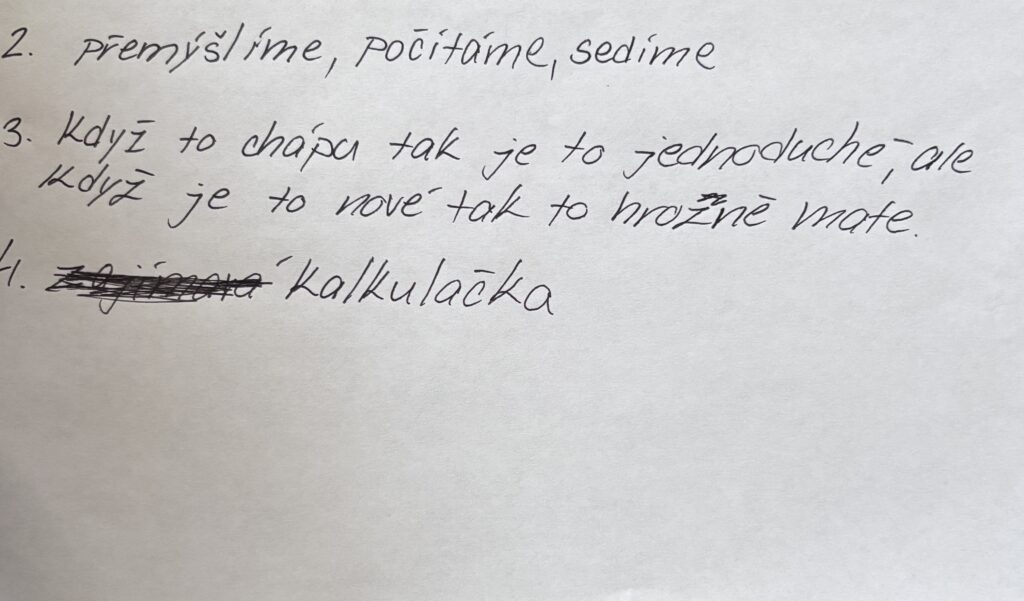 2. přemýšlíme, počítáme, sedíme
3. Když to chápu tak je to jednoduché, ale
když je to nové tak to hrozně mate.
4. zajímavá kalkulačka